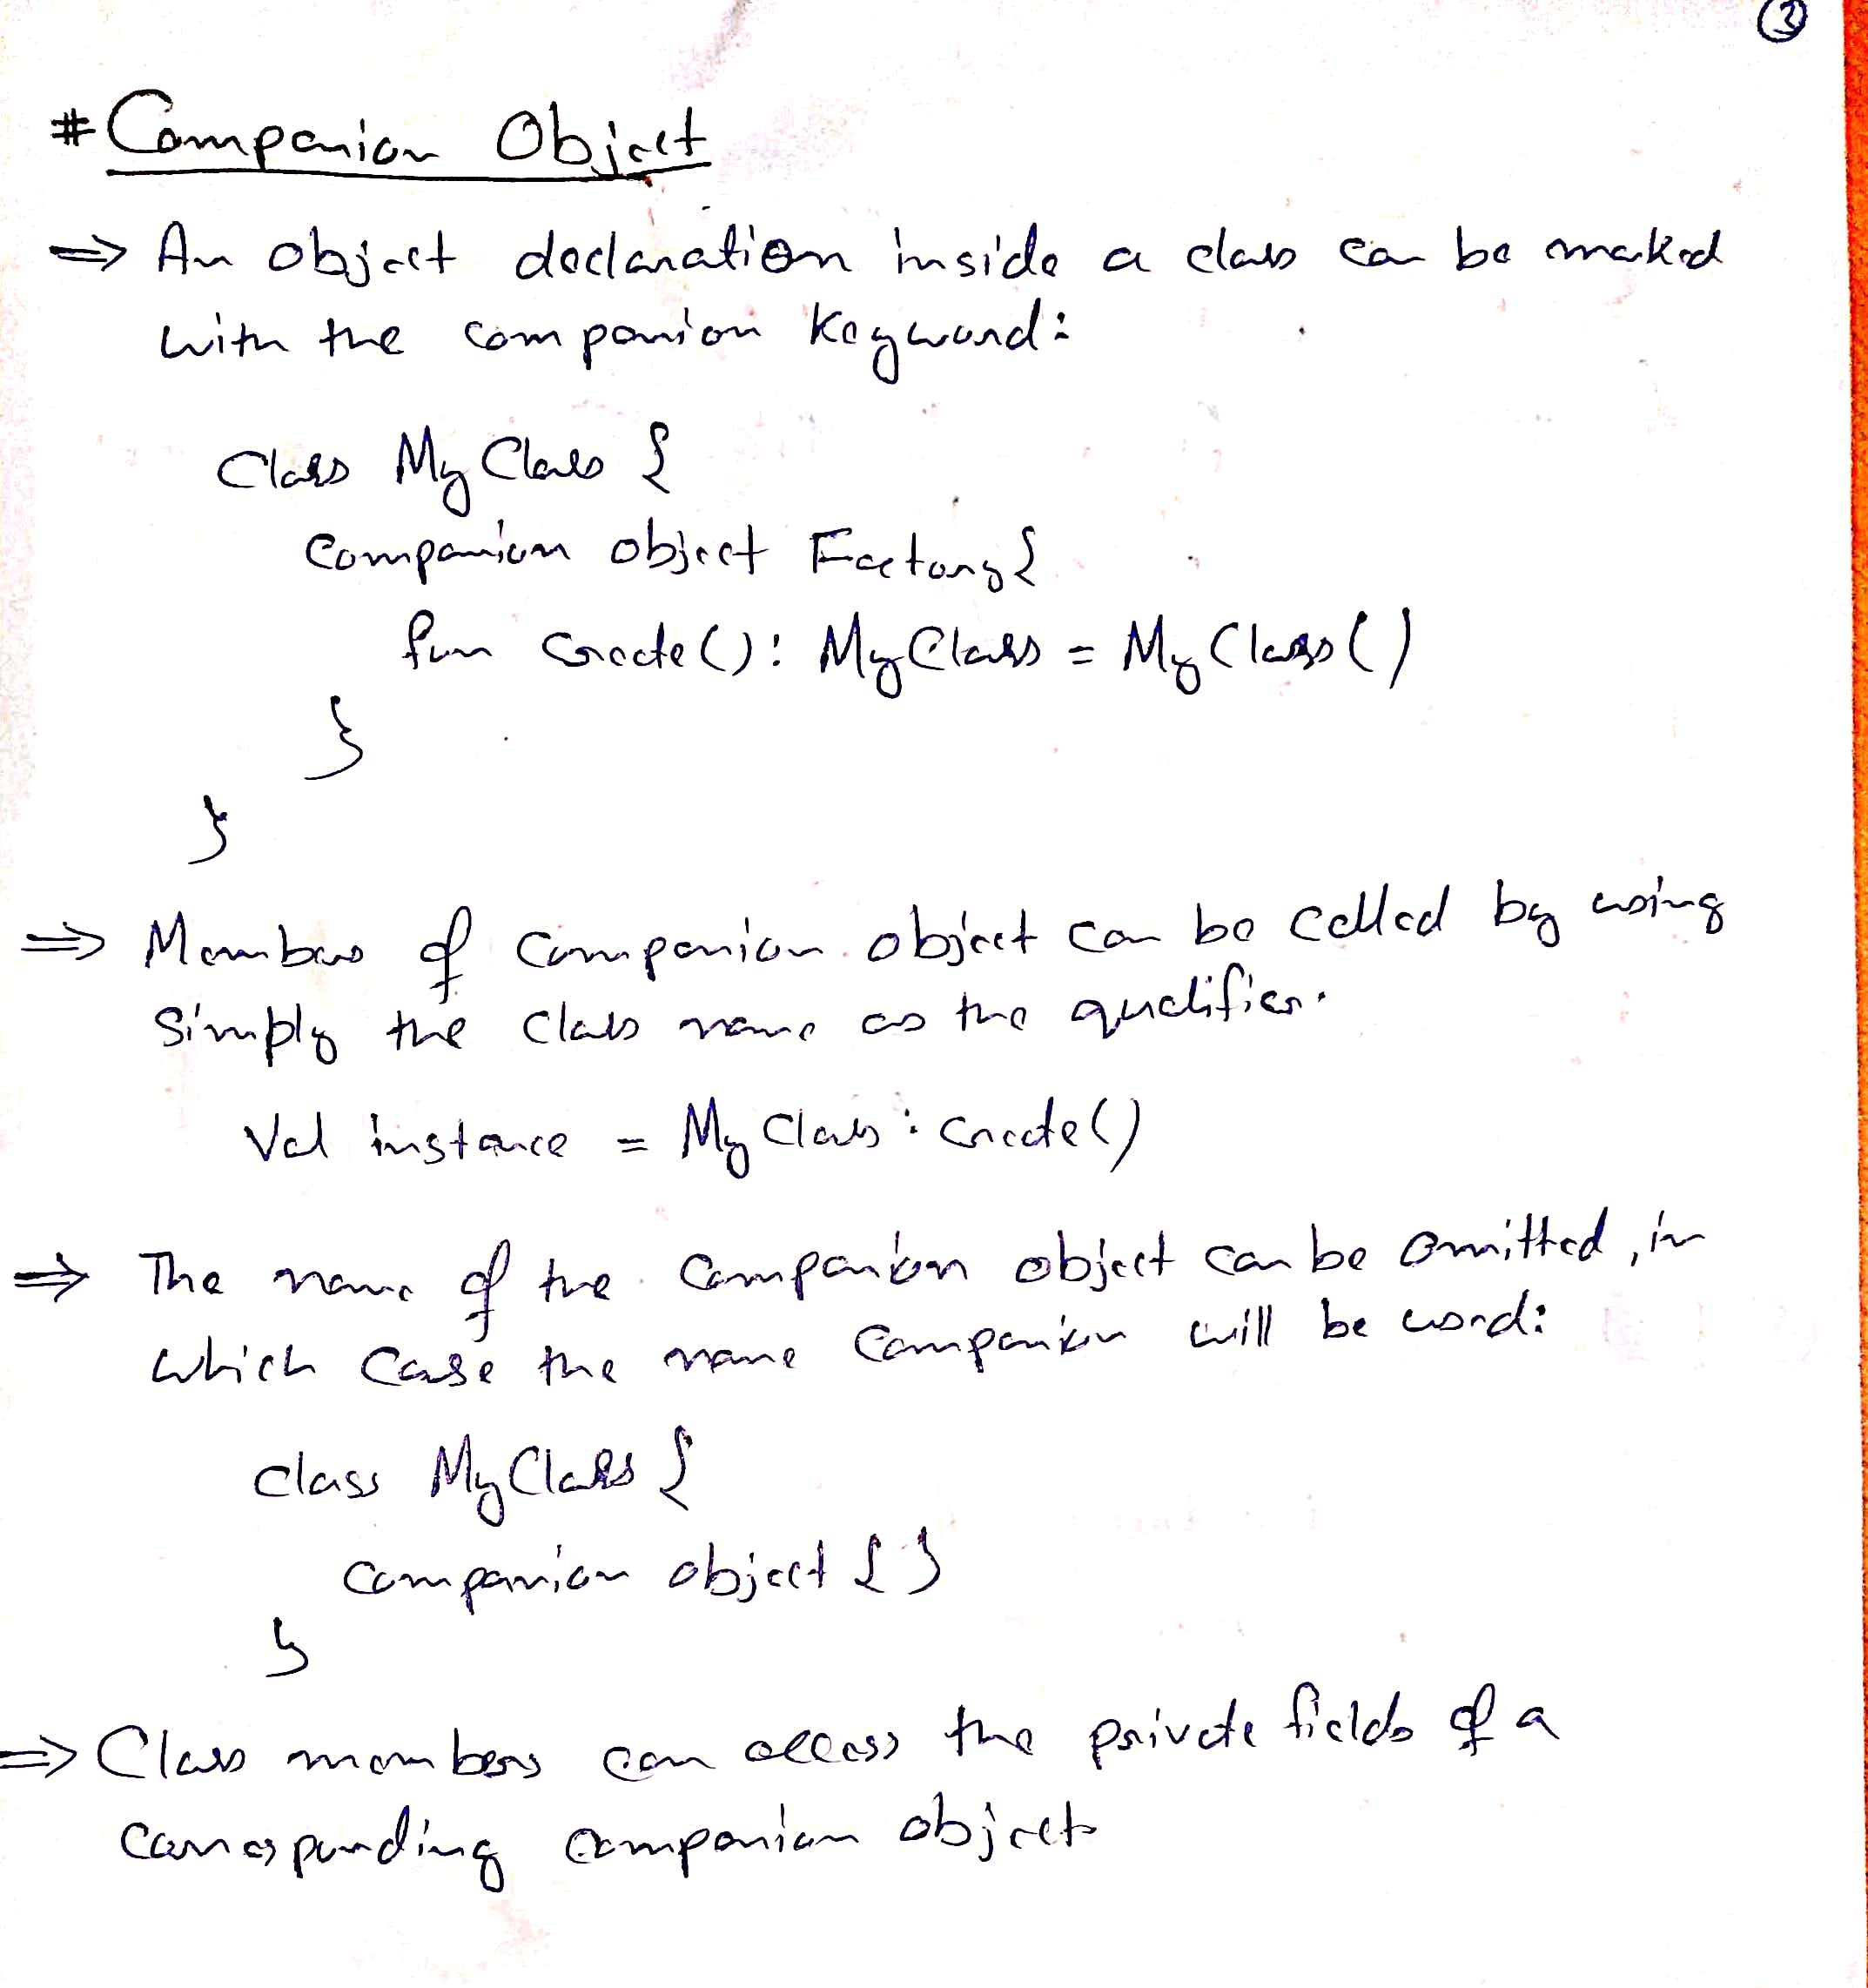 ③
# Companion Object
⇒ An object declaration inside a class can be marked
with the companion keyword:
Class MyClass {
Companion object Factory{
fun create(): MyClass = MyClass()
}
}
⇒ Members of Companion object can be called by using
Simply the class name as the qualifier.
Val instance = MyClass : create()
⇒ The name of the Companion object can be omitted, in
which case the name Companion will be used:
class MyClass {
companion object { }
}
⇒ Class members can access the private fields of a
corresponding companion object